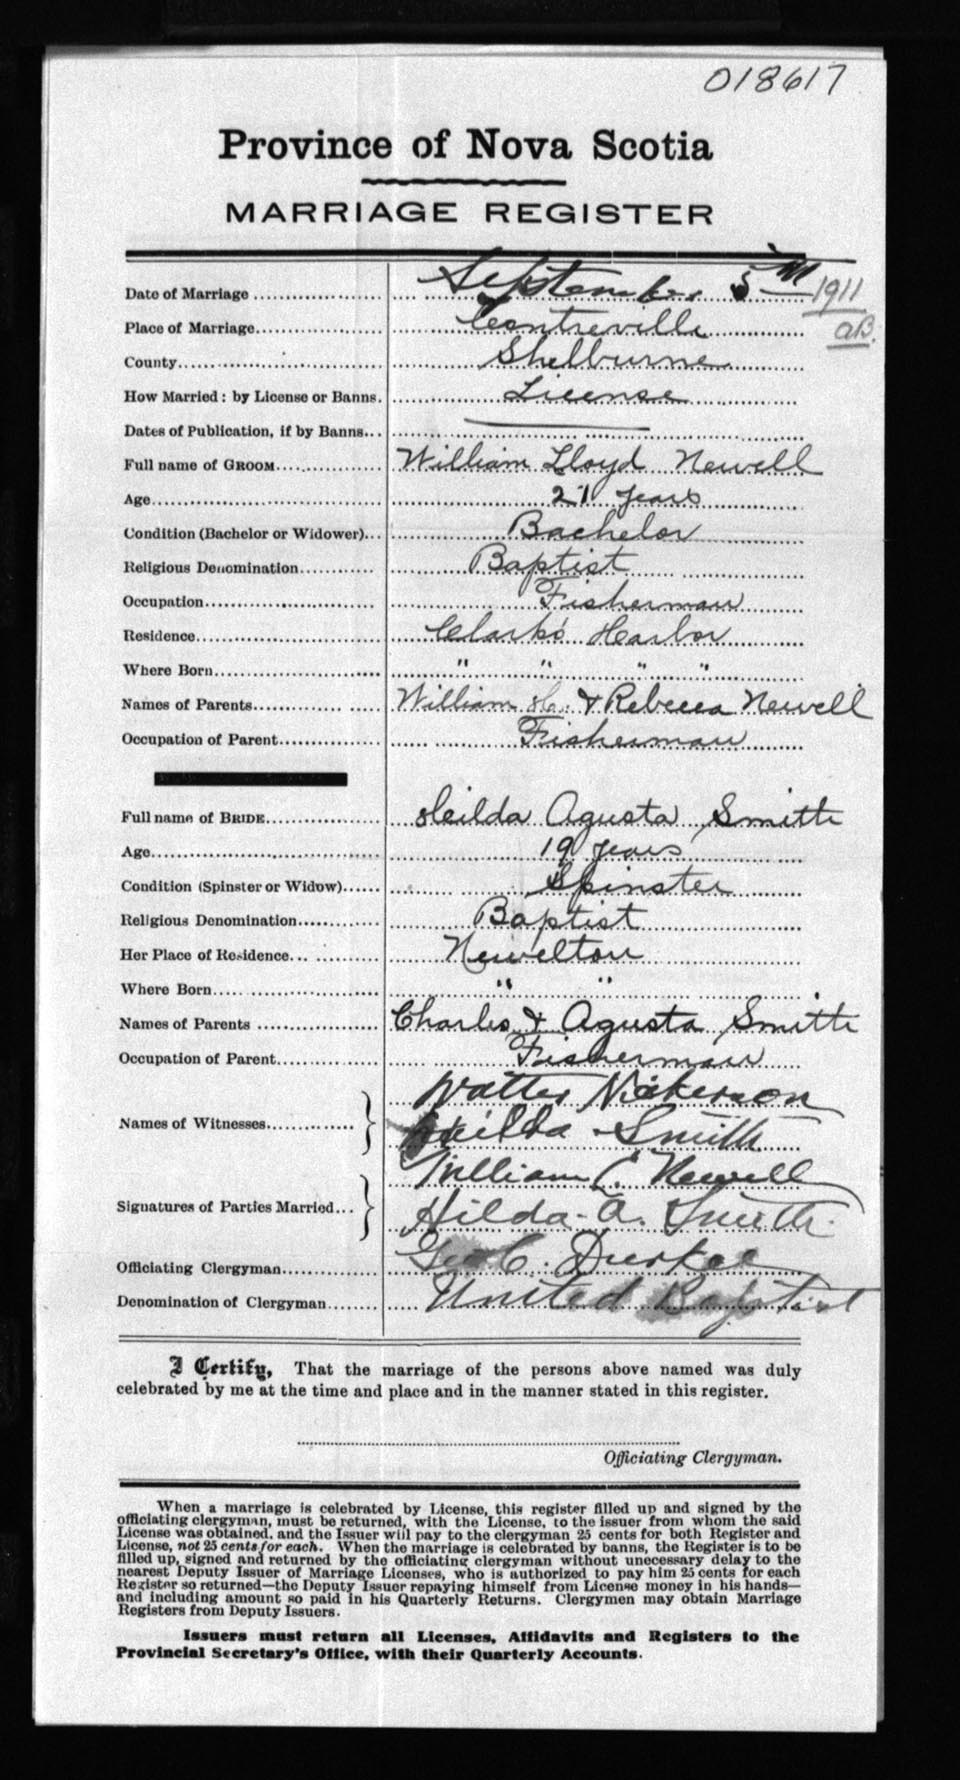 018617
Province of Nova Scotia
MARRIAGE REGISTER
Date of Marriage September 5th 1911
Place of Marriage Centreville aB.
County Shelburne
How Married: by License or Banns. License
Dates of Publication, if by Banns
Full name of GROOM William Lloyd Newell
Age 21 years
Condition (Bachelor or Widower) Bachelor
Religious Denomination Baptist
Occupation Fisherman
Residence Clark's Harbor
Where Born " " " "
Names of Parents William H. & Rebecca Newell
Occupation of Parent Fisherman
Full name of BRIDE Heilda Agusta Smith
Age 19 years
Condition (Spinster or Widow) Spinster
Religious Denomination Baptist
Her Place of Residence Newelton
Where Born " "
Names of Parents Charles & Agusta Smith
Occupation of Parent Fisherman
Names of Witnesses } Walter Nickerson
Hilda Smith
Signatures of Parties Married } William L. Newell
Hilda A. Smith.
Officiating Clergyman Geo C. Durkee
Denomination of Clergyman United Baptist
I Certify, That the marriage of the persons above named was duly
celebrated by me at the time and place and in the manner stated in this register.
Officiating Clergyman.
When a marriage is celebrated by License, this register filled up and signed by the
officiating clergyman, must be returned, with the License, to the issuer from whom the said
License was obtained, and the Issuer will pay to the clergyman 25 cents for both Register and
License, not 25 cents for each. When the marriage is celebrated by banns, the Register is to be
filled up, signed and returned by the officiating clergyman without unecessary delay to the
nearest Deputy Issuer of Marriage Licenses, who is authorized to pay him 25 cents for each
Register so returned—the Deputy Issuer repaying himself from License money in his hands—
and including amount so paid in his Quarterly Returns. Clergymen may obtain Marriage
Registers from Deputy Issuers.
Issuers must return all Licenses, Affidavits and Registers to the
Provincial Secretary's Office, with their Quarterly Accounts.